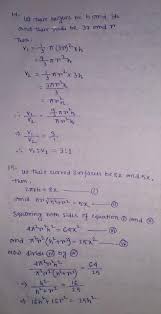 14. Let their heights be h and 3h
and their radii be 3r and r
Then,
V₁ = 1/3 π (3r)² × h
= 9/3 π r² h
V₂ = 1/3 π r² × 3h
= 3πr²h / 3
= πr²h
∴ V₁/V₂ = 9/3 πr²h / πr²h
⇒ V₁/V₂ = 9/3
∴ V₁ : V₂ = 3 : 1
15. Let their curved surfaces be 8x and 5x,
then,
2πrh = 8x
and πr√(h²+r²) = 5x
Squaring both sides of equation and
4π²r²h² = 64x²
and π²r²(h²+r²) = 25x²
4π²r²h² / π²r²(h²+r²) = 64/25
⇒ h²/(h²+r²) = 16/25
⇒ 16h² + 16r² = 25h²